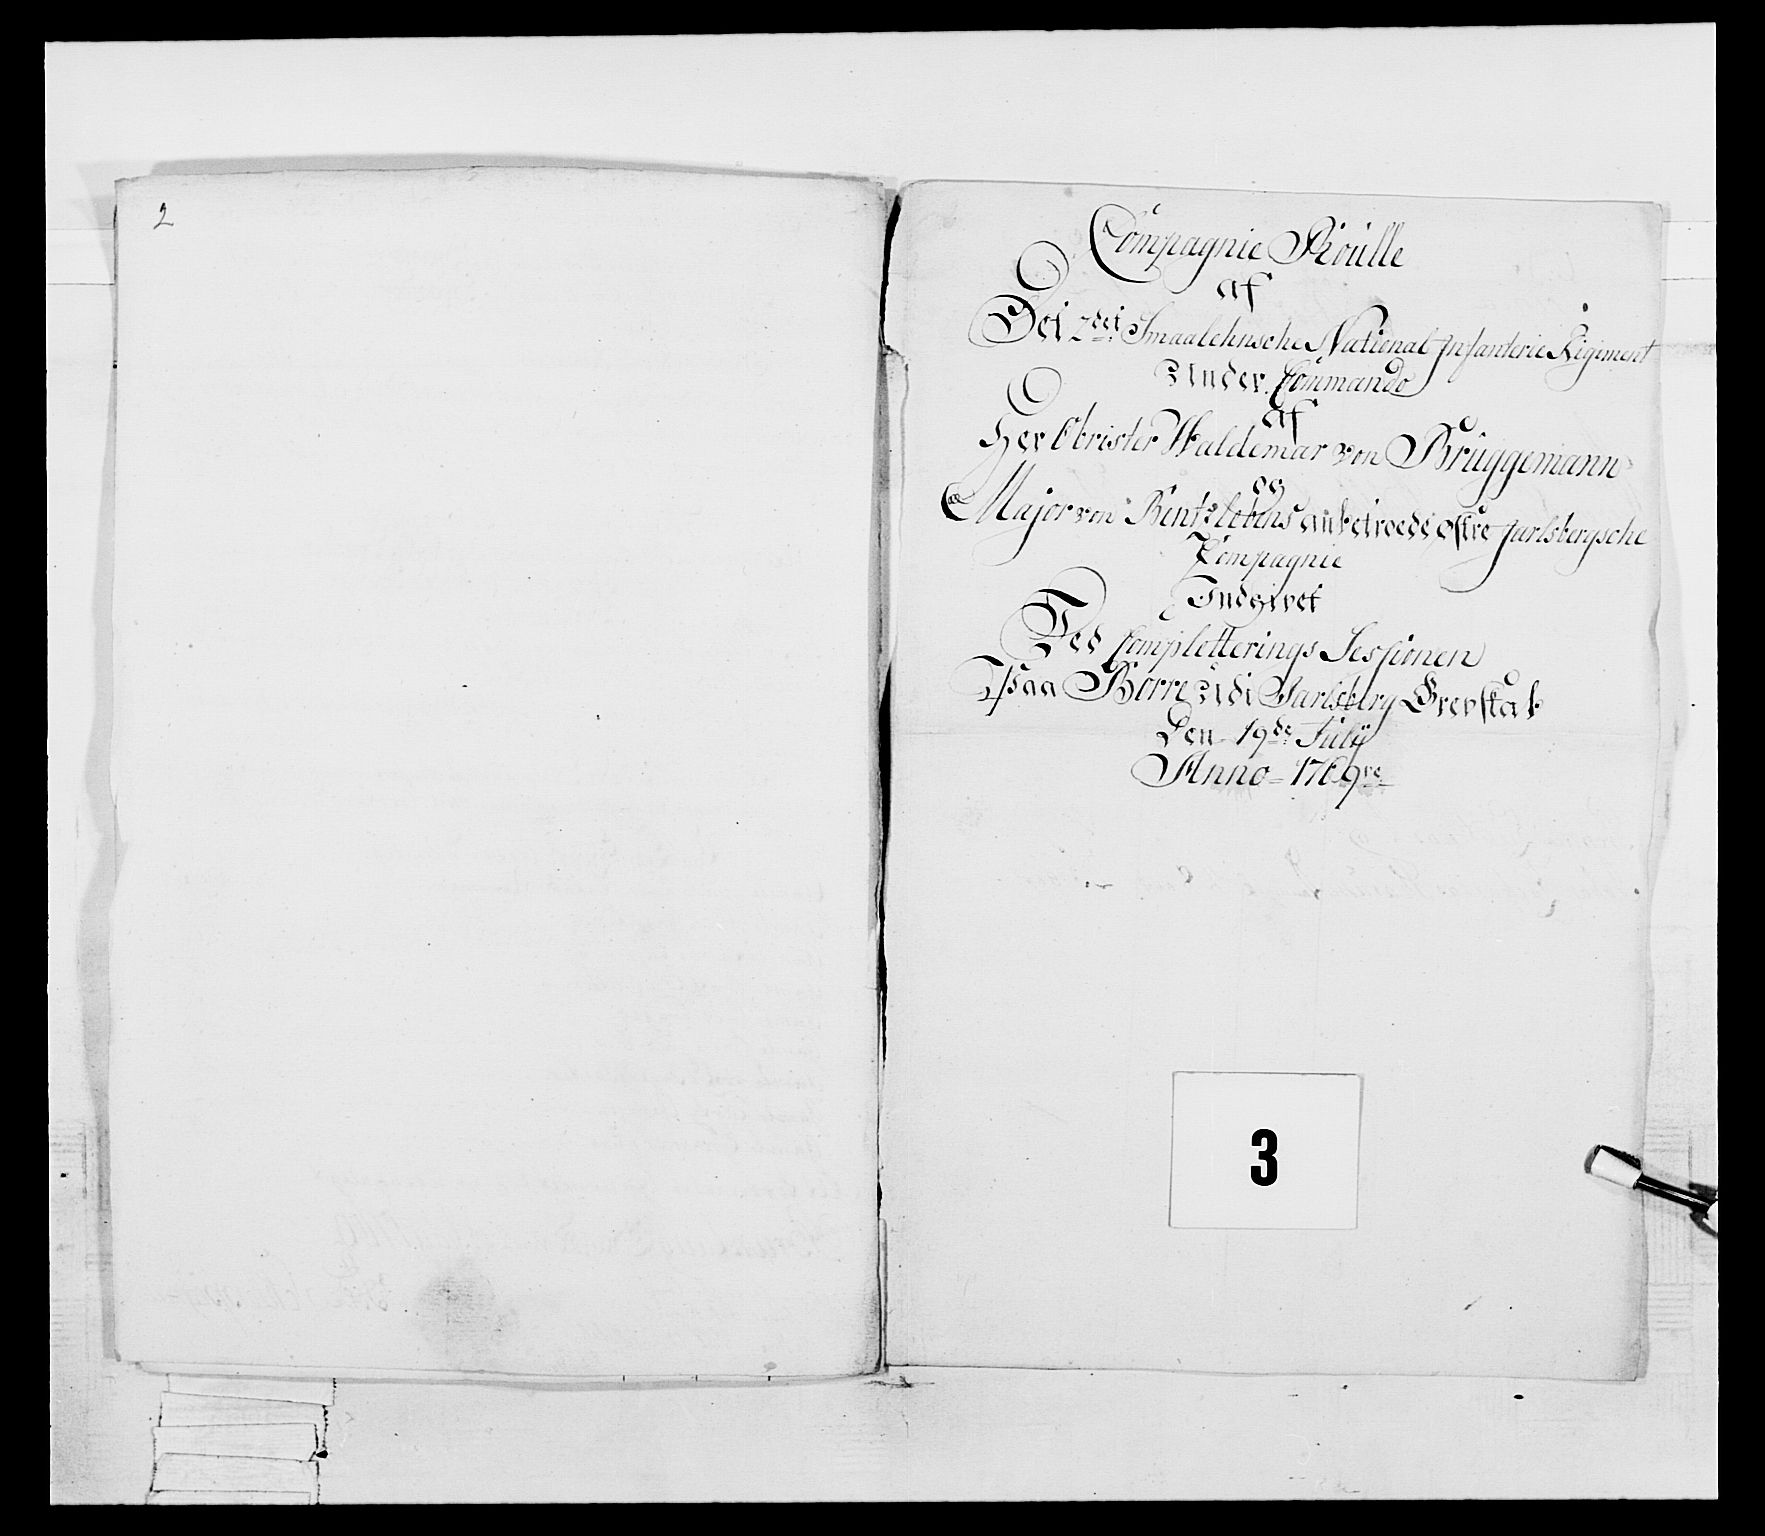 2
Compagnie Roulle
af
Det 2det Smaalehnsche National Infanterie Regiment
Under Commando
af
Her Obrister Waldemar von Brüggemann
og
Major von Bentzlebens anbetroede østre Jarlsbergsche
Compagnie
Indgivet
Ved Completterings Sessionen
Paa Borre Udi Jarlsberg Grevskab
Den 19de July
Anno 1769ve
3